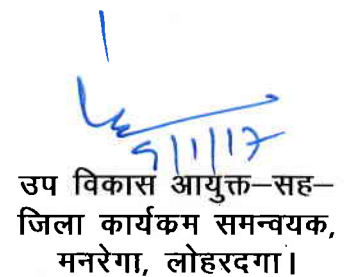 9/1/17
उप विकास आयुक्त–सह–
जिला कार्यकम समन्वयक,
मनरेगा, लोहरदगा।